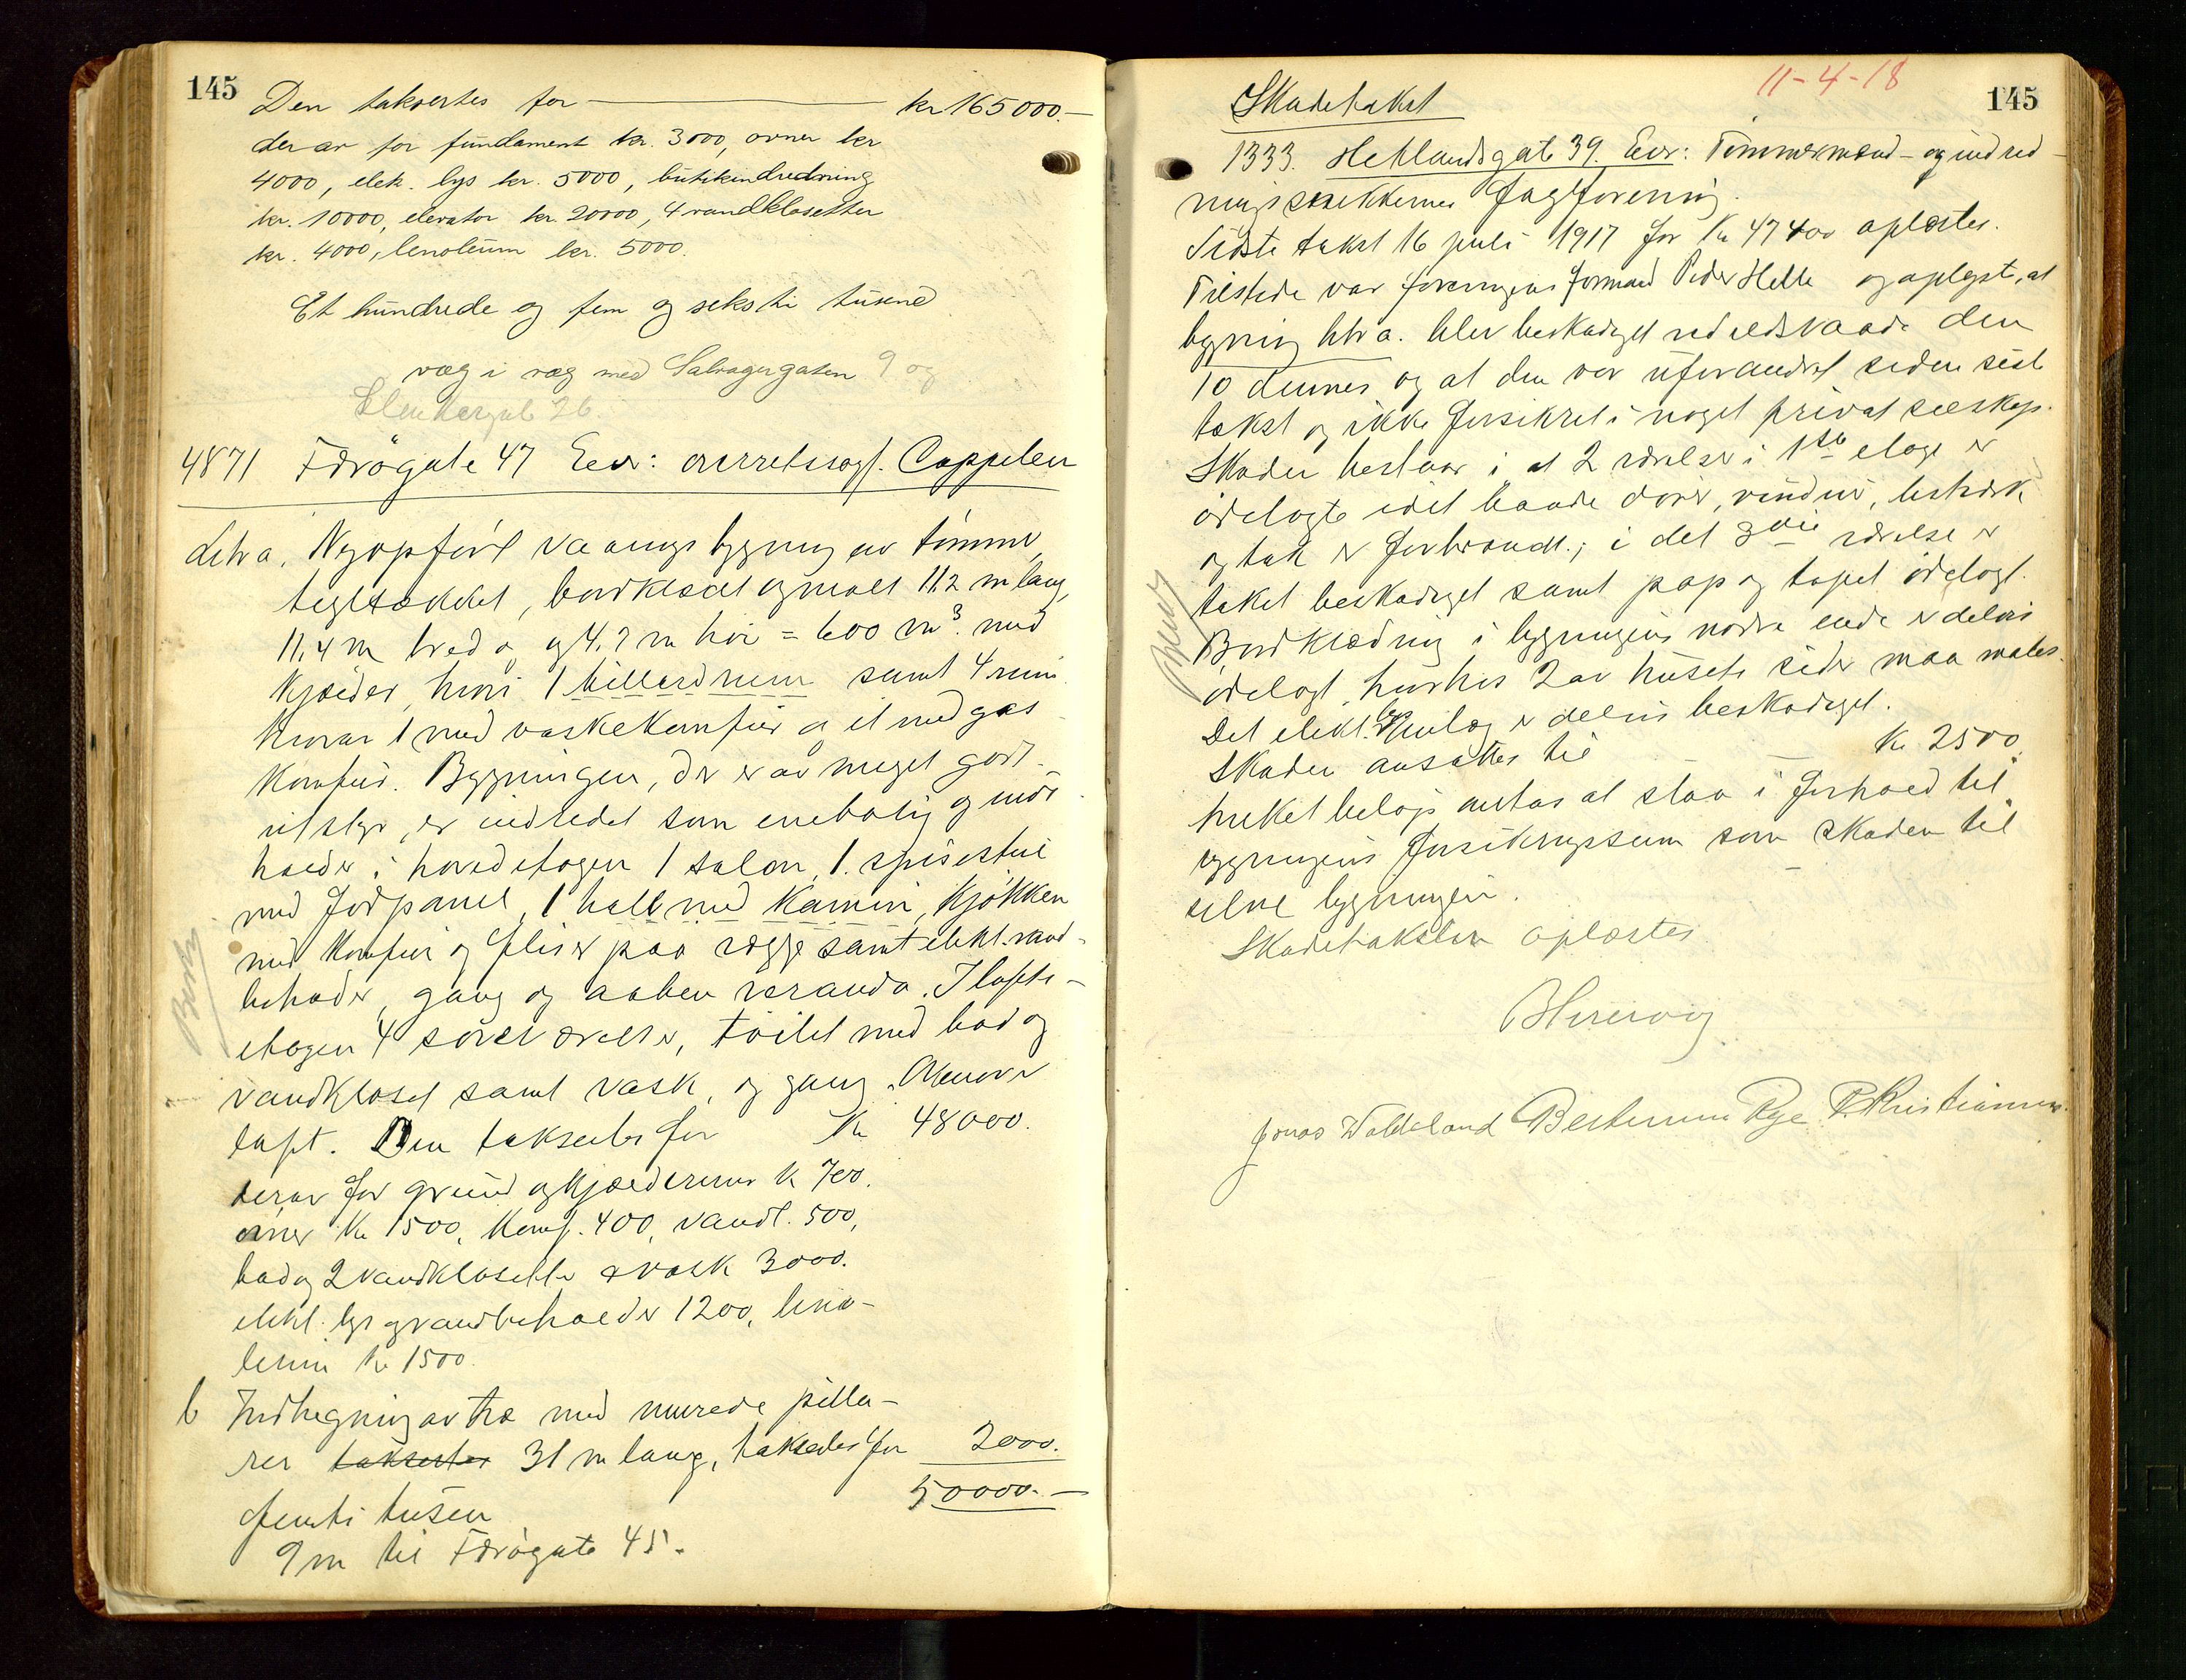 145
Den takseres for — kr 165000.—
derav for fundament kr. 3000, ovner kr
4000, elek. lys kr. 5000, butikindredning
kr. 10000, elevator kr. 20000, 4 vandklosetter
kr. 4000, linoleum kr. 5000.
Et hundrede og fem og seksti tusend
væg i væg med Salvagergaten 9 og
26.
4871 Færøgate 47 Eier: overretssagf. Cappelen
Litr a. Nyopført vaaningsbygning av tømmer,
tegltækket, bordklædt og malt 11,2 m lang,
11,4 m bred og 4,7 m høi = 600 m³. med
kjælder, hvori 1 billardrum samt 4 rum
hvorav 1 med vaskekomfur og et med gas-
komfur. Bygningen, der er av meget godt
utstyr, er indredet som enebolig og inde-
holder i hovedetagen 1 salon, 1 spisestue
med panel, 1 hall med kamin, kjøkken
med komfur og fliser paa vægge samt elekt. vand-
beholder, gang og aaben veranda. I lofts-
etagen 4 soveværelser, toilet med bad og
vandkloset samt vask, og gang. Ovenover
loft. Den takseres for Kr 48000.
derav for grund og kjælderrum kr 700.
ovner Kr 1500, Komf. 400, vandl. 500,
bad og 2 vandklosetter & vask 3000.
elekt. lys og vandbeholder 1200, lino-
leum kr 1500.
b Indhegning av træ med murede pilla-
rer takseres 31 m lang, takseres for 2000.
50000.—
Femti tusen
9 m til Færøgate 45.
11-4-18
145
Skadetakst
1333. Hetlandsgate 39. Eier: Tømmermænd- og indred-
ningssnekkernes Fagforening.
Sidste takst 16 juli 1917 for Kr 47400 oplæstes.
Tilstede var foreningens formand Peder Helle og oplyste, at
bygning litr a. blev beskadiget ved ildsvaade den
10 dennes og at den var uforandret siden sidste
takst og ikke forsikret i noget privat selskap.
Skaden bestaar i at 2 værelser i 1ste etage er
ødelagte idet baade dører, vinduer, listverk
og tak er forbrændt; i det 3die værelse er
taket beskadiget samt pap og tapet ødelagt.
Bordklædning i bygningens nordre ende er delvis
ødelagt, hvorhos 2 av husets sider maa males.
Det elekt. lysanlæg er delvis beskadiget.
Skaden ansættes til — Kr 2500.
hvilket beløp antas at staa i forhold til
bygningens forsikringssum som skaden til
selve bygningen.
Skadetaksten oplæstes
Jonas Waldeland Bertinius Rye P. Kristiansen